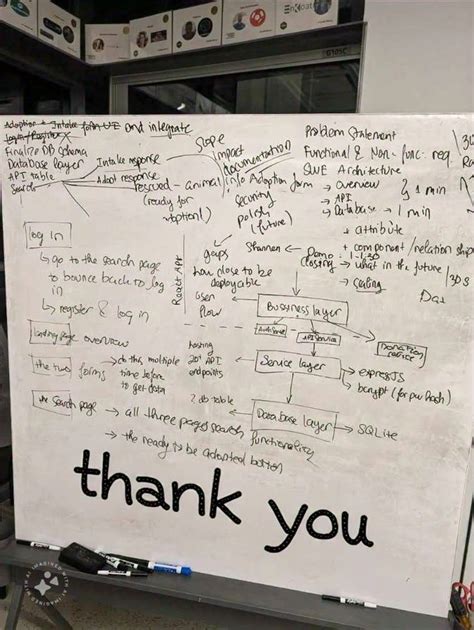 Adoption & Intake form UI and integrate
Login/Register
Finalize DB Schema
DataBase layer
API table
Search
Intake response
Adopt response
rescued - animal
(ready for
option)
Slope
impact
documentation
info Adoption form
security
polish
(future)
Problem Statement
Functional & Non-func. req
SWE Architecture
→ overview
→ API
→ Database → 1 min
1 min
+ attribute
+ component / relationship
Shannen
Demo
closing
→ what in the future / 30s
→ scaling
log in
→ go to the search page
to bounce back to log
in
→ register & log in
React API
gaps
how close to be
deployable
user
flow
Business layer
API Service
Donation
service
landing page overview
the two forms
→ do this multiple
time before
to get data
hosting
20+ API
endpoints
Service layer
→ expressJS
→ bcrypt (for pw hash)
? db table
Database layer
→ SQLite
the search page
→ all three pages search functionality
→ the ready to be adopted button
thank you